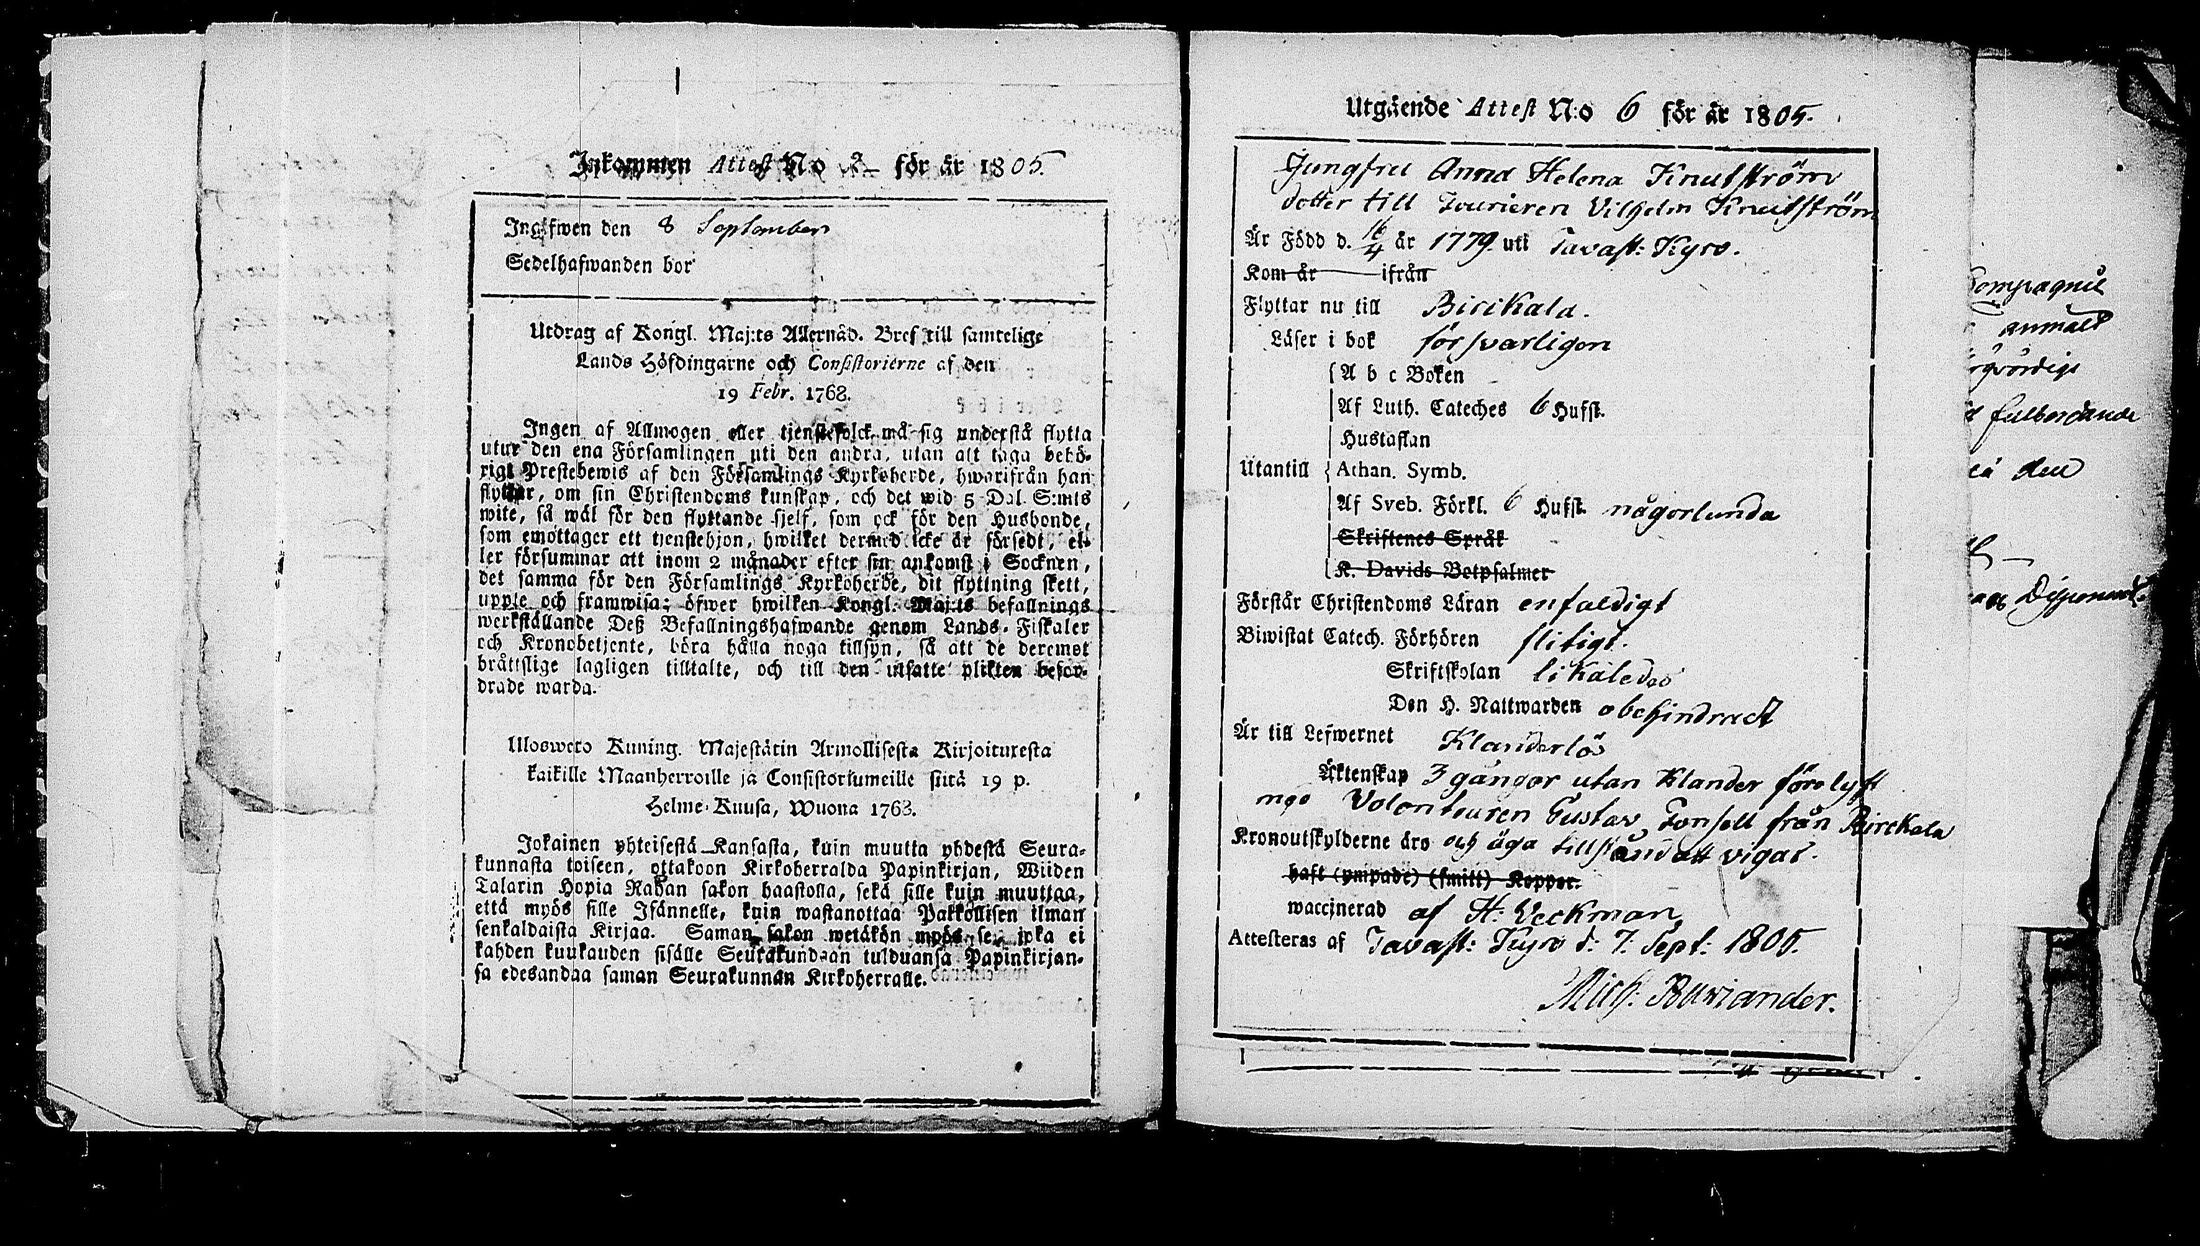 Inkommen Attest No 2 för år 1805.
Ingifwen den 8 September
Sedelhafwanden bor
Utdrag af Kongl. Maj:ts Allernåd. Bref till samtelige
Lands Höfdingarne och Consistorierne af den
19 Febr. 1768.
Ingen af Allmogen eller tjenstefolck må sig understå flytta
utur den ena Församlingen uti den andra, utan att taga behö-
rigt Prestebewis af den Församlings Kyrkoherde, hwarifrån han
flyttar, om sin Christendoms kunskap, och det wid 5 Dal. S:mts
wite, så wäl för den flyttande sjelf, som ock för den Husbonde,
som emottager ett tjenstehjon, hwilket dermed icke är försedt, el-
ler försummar att inom 2 månader efter sin ankomst i Socknen,
det samma för den Församlings Kyrkoherde, dit flyttning skett,
upple och framwisa; öfwer hwilken Kongl. Maj:ts befallnings
werkställande Deß Befallningshafwande genom Lands-Fiskaler
och Kronobetjente, böra hålla noga tillsyn, så att de deremot
bråttslige lagligen tilltalte, och till den utsatte plikten befor-
drade warda.
Ulosweto Kuning. Majestätin Armollisesta Kirjoituresta
kaikille Maanherroille ja Consistoriumeille siitä 19 p.
Helme-Kuusa, Wuona 1768.
Jokainen yhteisestä Kansasta, kuin muutta yhdestä Seura-
kunnasta toiseen, ottakoon Kirkoherralda Papinkirjan, Wiiden
Talarin Hopia Rahan sakon haastolla, sekä sille kuin muuttaa,
että myös sille Isännelle, kuin wastanottaa Palkollisen ilman
senkaldaista Kirjaa. Saman sakon wetäkön myös se, joka ei
kahden kuukauden sisälle Seurakundaan tulduansa Papinkirjan-
sa edesandaa saman Seurakunnan Kirkoherralle.
Utgående Attest N:o 6 för år 1805.
Jungfru Anna Helena Knutström
dotter till Fourieren Vilhelm Knutström
Är Född d. 16/4 år 1779. uti Tavast: Kyro.
Kom år ifrån
Flyttar nu till Birckala.
Läser i bok försvarligen
A b c Boken
Af Luth. Cateches 6 Hufst.
Hustaflan
Utantill Athan. Symb.
Af Sveb. Förkl. 6 Hufst. någorlunda
Skriftenes Språk
K. Davids Botpsalmer
Förstår Christendoms Läran enfaldigt
Biwistat Catech. Förhören flitigt.
Skriftskolan likaledes
Den H. Nattwarden obehindrad
Är till Lefwernet Klanderlös
Äktenskap 3 gångor utan Klander förelyst
med Volonteuren Gustav Fonsell från Birckala
Kronoutskylderne äro och äga tillstånd att vigas.
haft (ympade) (smitt) Koppor.
waccinerad af H. Veckman
Attesteras af Tavast: Kyro d: 7. Sept: 1805.
Mich. Baviander.
Compagniet
anmält
fulbordande
den